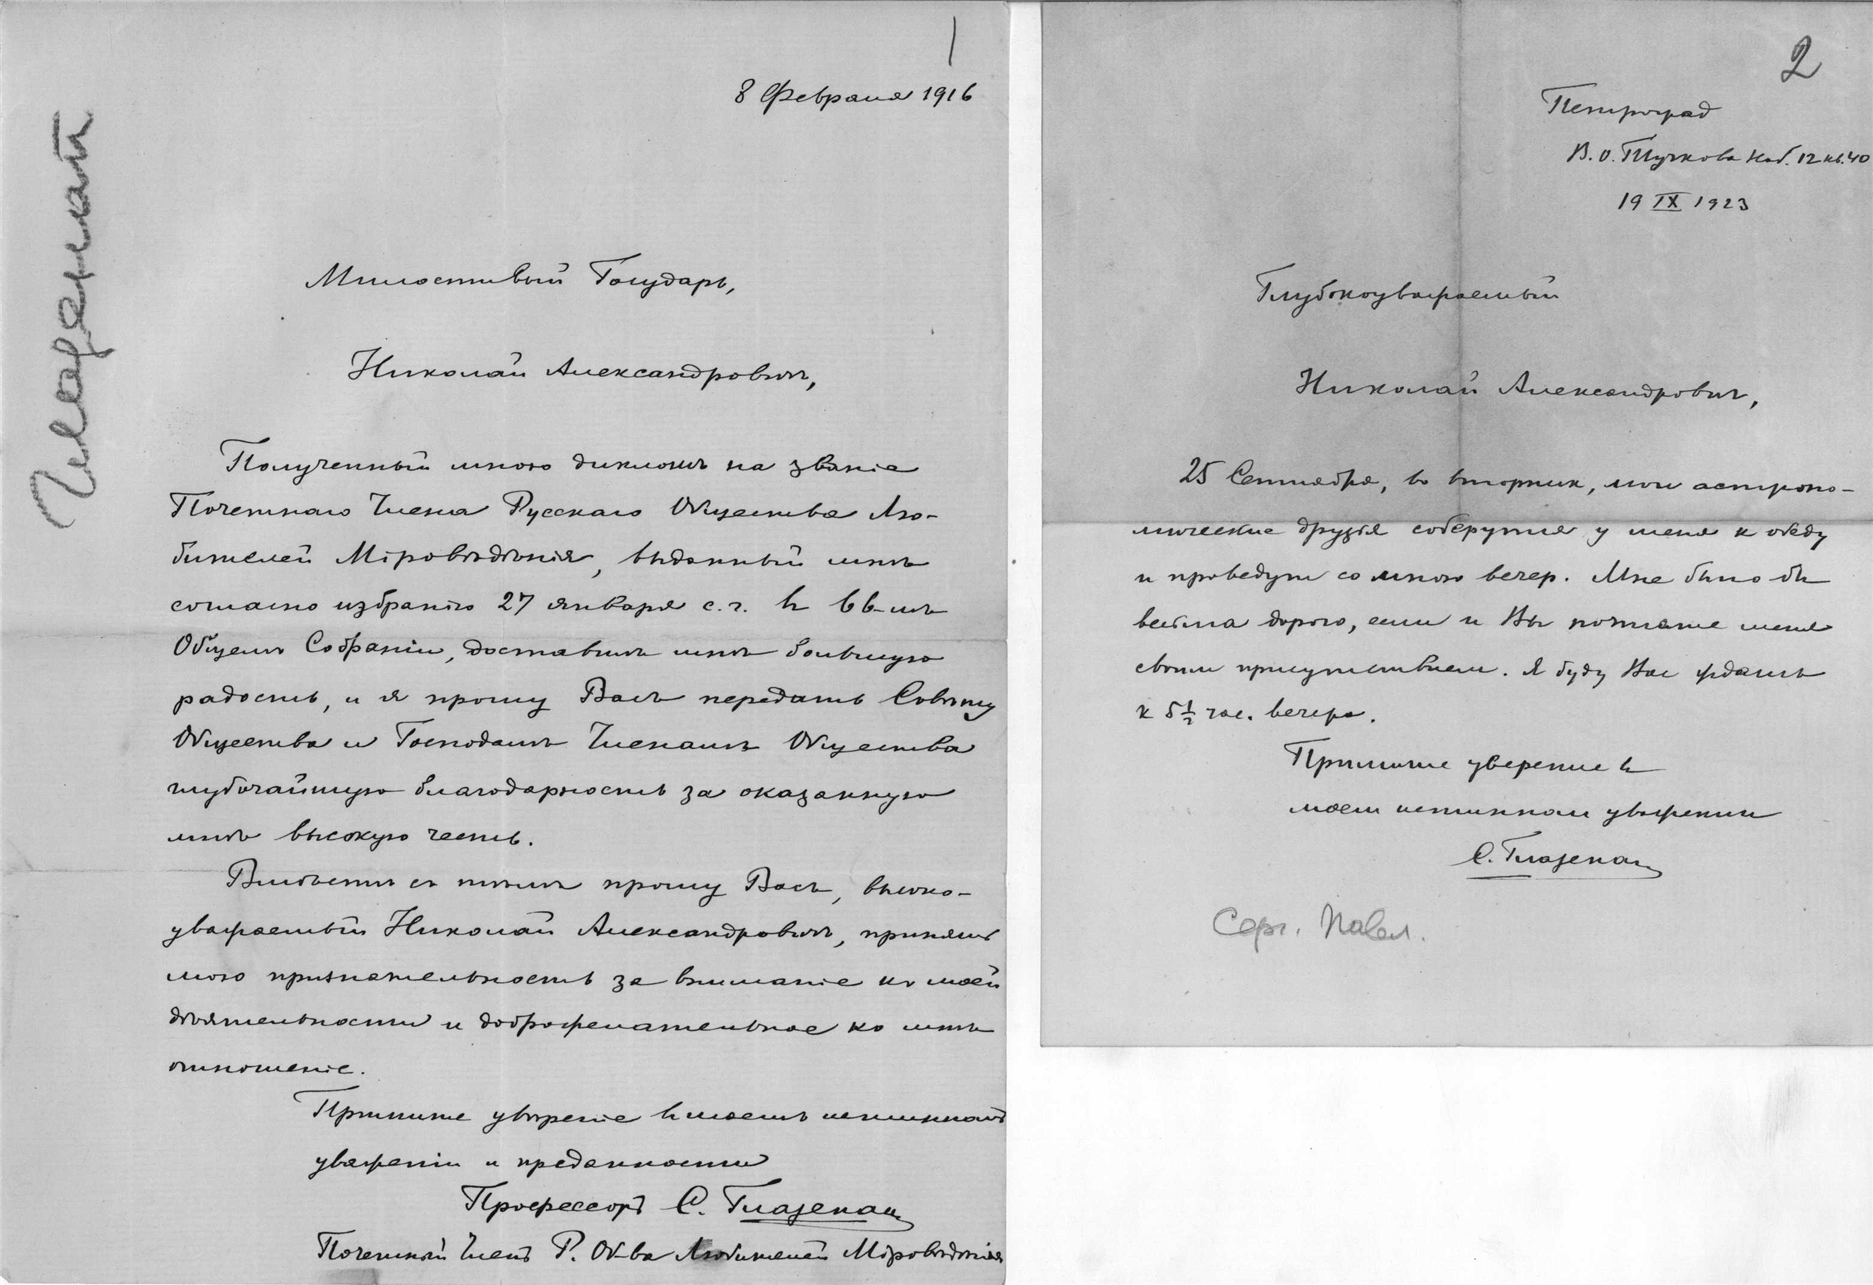 1
8 Февраля 1916
Глазенап
Милостивый Государь,
Николай Александровичъ,
Полученный мною дипломъ на званіе
Почетнаго Члена Русскаго Общества Лю-
бителей Міровѣдѣнія, выданный мнѣ
согласно избранію 27 января с.г. въ
Общемъ Собраніи, доставилъ мнѣ большую
радость, и я прошу Васъ передать Совѣту
Общества и Господамъ Членамъ Общества
глубочайшую благодарность за оказанную
мнѣ высокую честь.
Вмѣстѣ съ тѣмъ прошу Васъ, высоко-
уважаемый Николай Александровичъ, принять
мою признательность за вниманіе къ моей
дѣятельности и доброжелательное ко мнѣ
отношеніе.
Примите увѣреніе въ моемъ истинномъ
уваженіи и преданности
Профессоръ С. Глазенап
Почетный Членъ Р. Об-ва Любителей Міровѣдѣнія
2
Петроград
В. О. Тучкова наб. 12 кв. 40
19 IX 1923
Глубокоуважаемый
Николай Александрович,
25 Сентября, во вторник, мои астроно-
мические друзья соберутся у меня к обеду
и проведут со мною вечер. Мне было бы
весьма дорого, если и Вы почтите меня
своим присутствием. Я буду Вас ждать
к 5½ час. вечера.
Примите уверение в
моем истинном уважении
С. Глазенап
Серг. Павл.